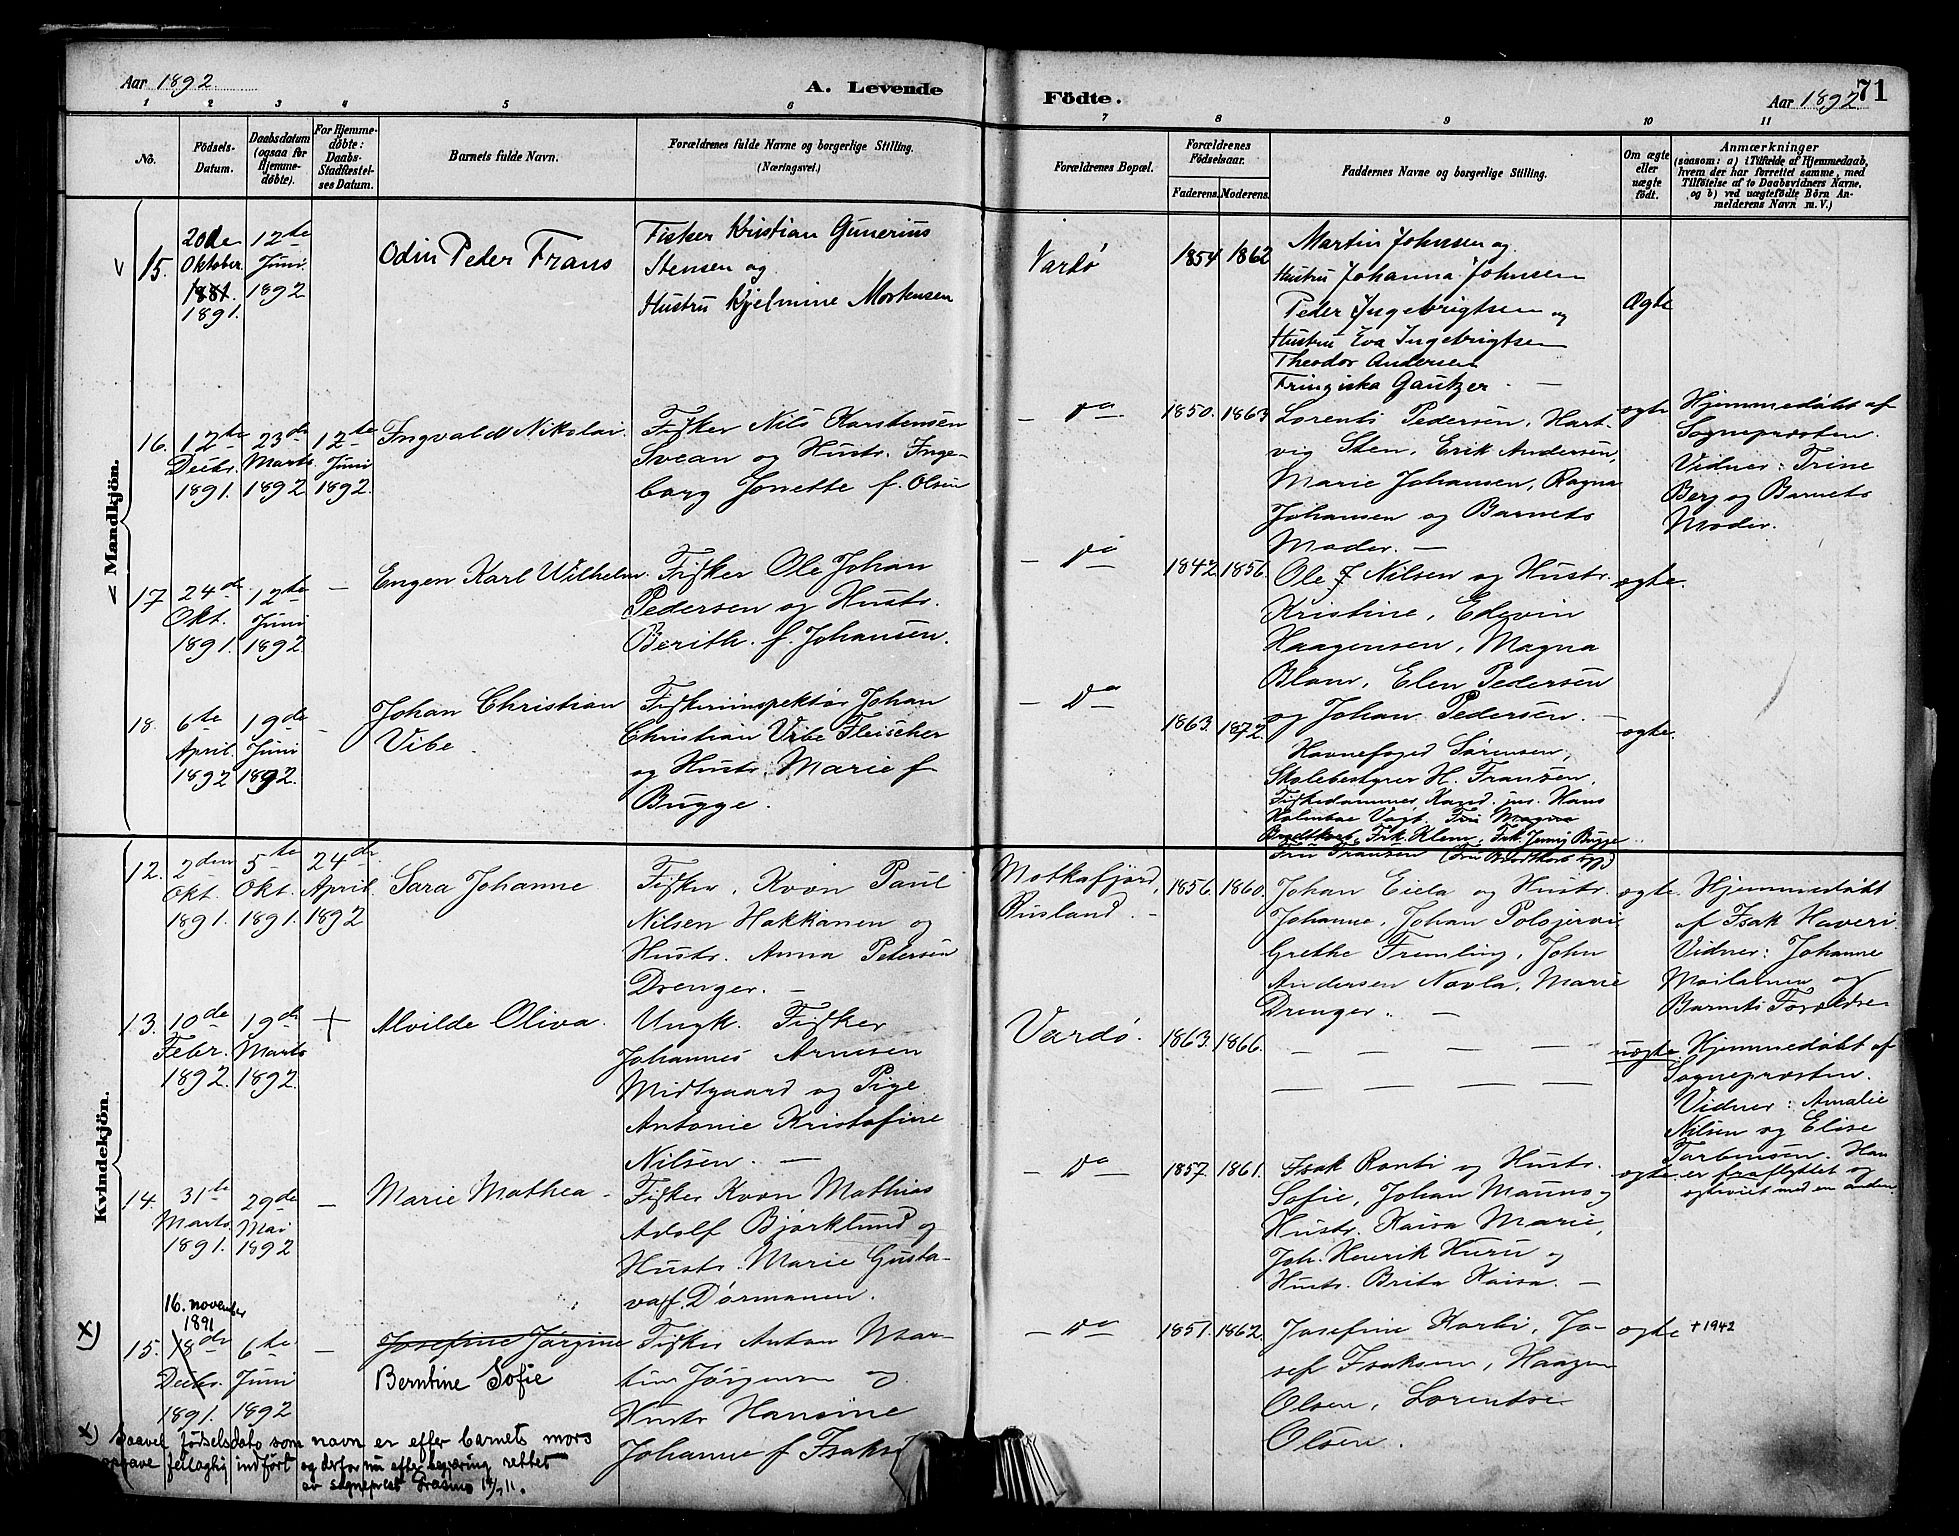 Aar 1892.
A. Levende
Födte.
Aar 1892.
71
1 2 3 4 5 6 7 8 9 10 11
No.
Födsels-
Datum.
Daabsdatum
(ogsaa for
Hjemme-
döbte).
For Hjemme-
döbte:
Daabs-
Stadfæstel-
ses Datum.
Barnets fulde Navn.
Forældrenes fulde Navne og borgerlige Stilling.
(Næringsvei.)
Forældrenes Bopæl.
Forældrenes
Födselsaar.
Faderens. Moderens.
Faddernes Navne og borgerlige Stilling.
Om ægte
eller
uægte
födt.
Anmærkninger
(saasom: a) i Tilfælde af Hjemmedaab,
hvem der har forrettet samme, med
Tilföielse af to Daabsvidners Navne,
og b) ved uægtefödte Börn An-
melderens Navn m. V.)
Mandkjön.
15.
20de
Oktober
1881.
1891.
12te
Juni
1892
Odin Peder Frans
Fisker Kristian Gunerius
Stensen og
Hustru Hjelmine Mortensen
Vardø
1854 1862
Martin Johnsen og
Hustru Johanna Johnsen
Peder Ingebrigtsen og
Hustru Eva Ingebrigtsen
Theodor Andersen
Fringiska Gautzer. —
Ægte
16.
12te
Decbr.
1891.
23de
Marts
1892
12te
Juni
1892.
Ingvald Nikolai.
Fisker Nils Karstensen
Svean og Hustr. Inge-
borg Jonette f. Olsen
— do —
1850. 1863
Lorents Pedersen, Hart-
vig Sten, Erik Andersen,
Marie Johansen, Ragna
Johansen og Barnets
Moder. —
ægte
Hjemmedøbt af
Sognepræsten.
Vidner: Trine
Berg og Barnets
Moder.
17
24de
Okt.
1891.
12te
Juni
1892.
—
Engen Karl Wilhelm.
Fisker Ole Johan
Pedersen og Hustr.
Berith. f. Johansen.
— do —
1842 1856.
Ole J Nilsen og Hustr.
Kristine, Edevin
Haagensen, Magna
Blom, Elen Pedersen
og Johan Pedersen. —
ægte.
18.
6te
April
1892
19de
Juni
1892.
—
Johan Christian
Vibe.
Fiskeriinspektør Johan
Christian Vibe Fleischer
og Hustr. Marie f
Bugge.
— do —
1863. 1872.
Havnefoged Sørensen,
Skolebestyrer H. Fransen,
Kand. jur. Hans
Vogt, Fru Magna
Frk. Klem, Frk. Jenny Bugge
Fru Fransen
ægte.
Kvindekjön.
12.
2den
Okt.
1891.
5te
Okt.
1891.
24de
April
1892
Sara Johanne
Fisker, Kvæn Paul
Nilsen Hakkanen og
Hustr. Anna Petersen
Drenger. —
Motkafjord,
Rusland. —
1856. 1860.
Johan Eiela og Hustr.
Johanne, Johan Polojervi
Grethe Fremling, John
Andersen Navla, Marie
Drenger. —
ægte.
Hjemmedøbt
af Isak Haveri.
Vidner: Johanne
Mailanen og
Barnets Forældre
13.
10de
Febr.
1892.
19de
Marts
1892.
+
Alvilde Oliva.
Ungk. Fisker
Johannes Arnesen
Midtgaard og Pige
Antonie Kristofine
Nilsen. —
Vardø.
1863. 1866.
— — — —
— — — —
uægte.
Hjemmedøbt af
Sognepræsten.
Vidner: Amalie
Nilsen og Elise
Torbensen. Han
er fraflyttet og
med en anden.
14.
31te
Marts
1891.
29de
Mai
1892
—
Marie Mathea
Fisker Kvæn Mathias
Adolf Bjørklund og
Hustr. Marie Gusta-
va f. Dørmanen.
— do —
1857. 1861.
Isak Ronti og Hustr.
Sofie, Johan Mauno og
Hustr. Kaisa Marie,
Joh. Henrik Kuru og
Hustr. Brita Kaisa. —
ægte.
x)
15.
16. november
1891
18de
Decbr.
1891.
6te
Juni
1892
—
Josefine Jørgine
Berntine Sofie
Fisker Anton Mar-
tin Jørgensen og
Hustr Hansine
Johanne f Isaksd
— do —
1851. 1862.
Josefine Korbi, Jo-
sef Isaksen, Haagen
Olsen, Lorentse
Olsen.
ægte
+ 1942
x) Saavel fødselsdato som navn er efter barnets mors
opgave feilagtig indført og derfor nu efter begjæring rettet
av sogneprest